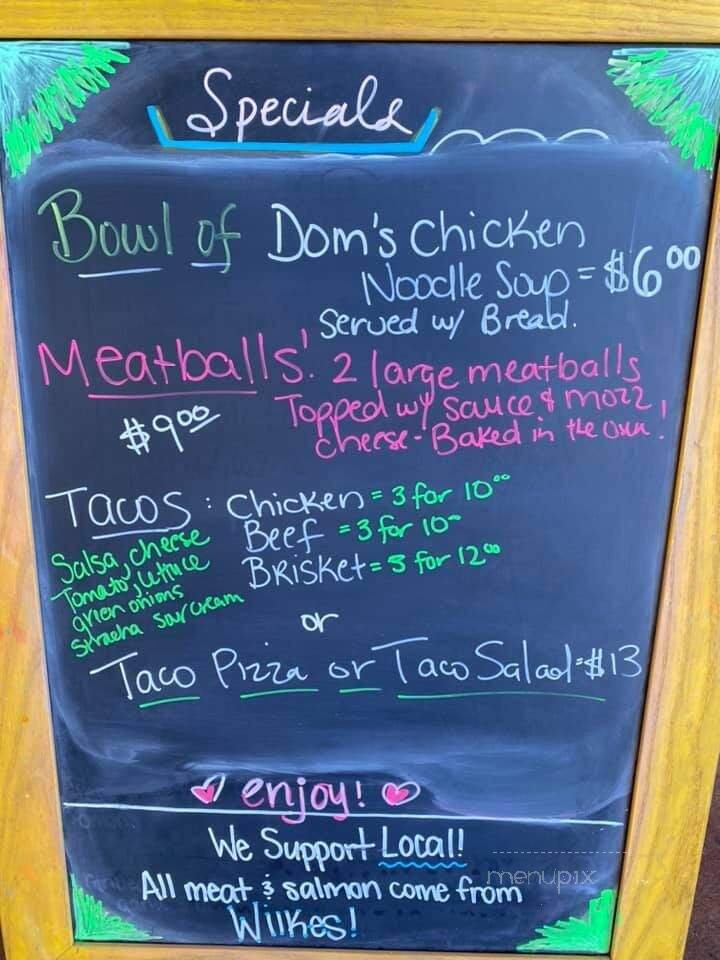 Specials
Bowl of Dom's Chicken
Noodle Soup = $6.00
Served w/ Bread.
Meatballs! 2 large meatballs
$9.00 Topped w/ sauce & mozz
cheese - Baked in the oven!
Tacos: Chicken = 3 for 10.00
Beef = 3 for 10
Brisket = 3 for 12.00
Salsa, cheese
Tomato, lettuce
green onions
sriracha sour cream
or
Taco Pizza or Taco Salad = $13
enjoy!
We Support Local!
All meat & salmon come from
Wilkes!
menupix